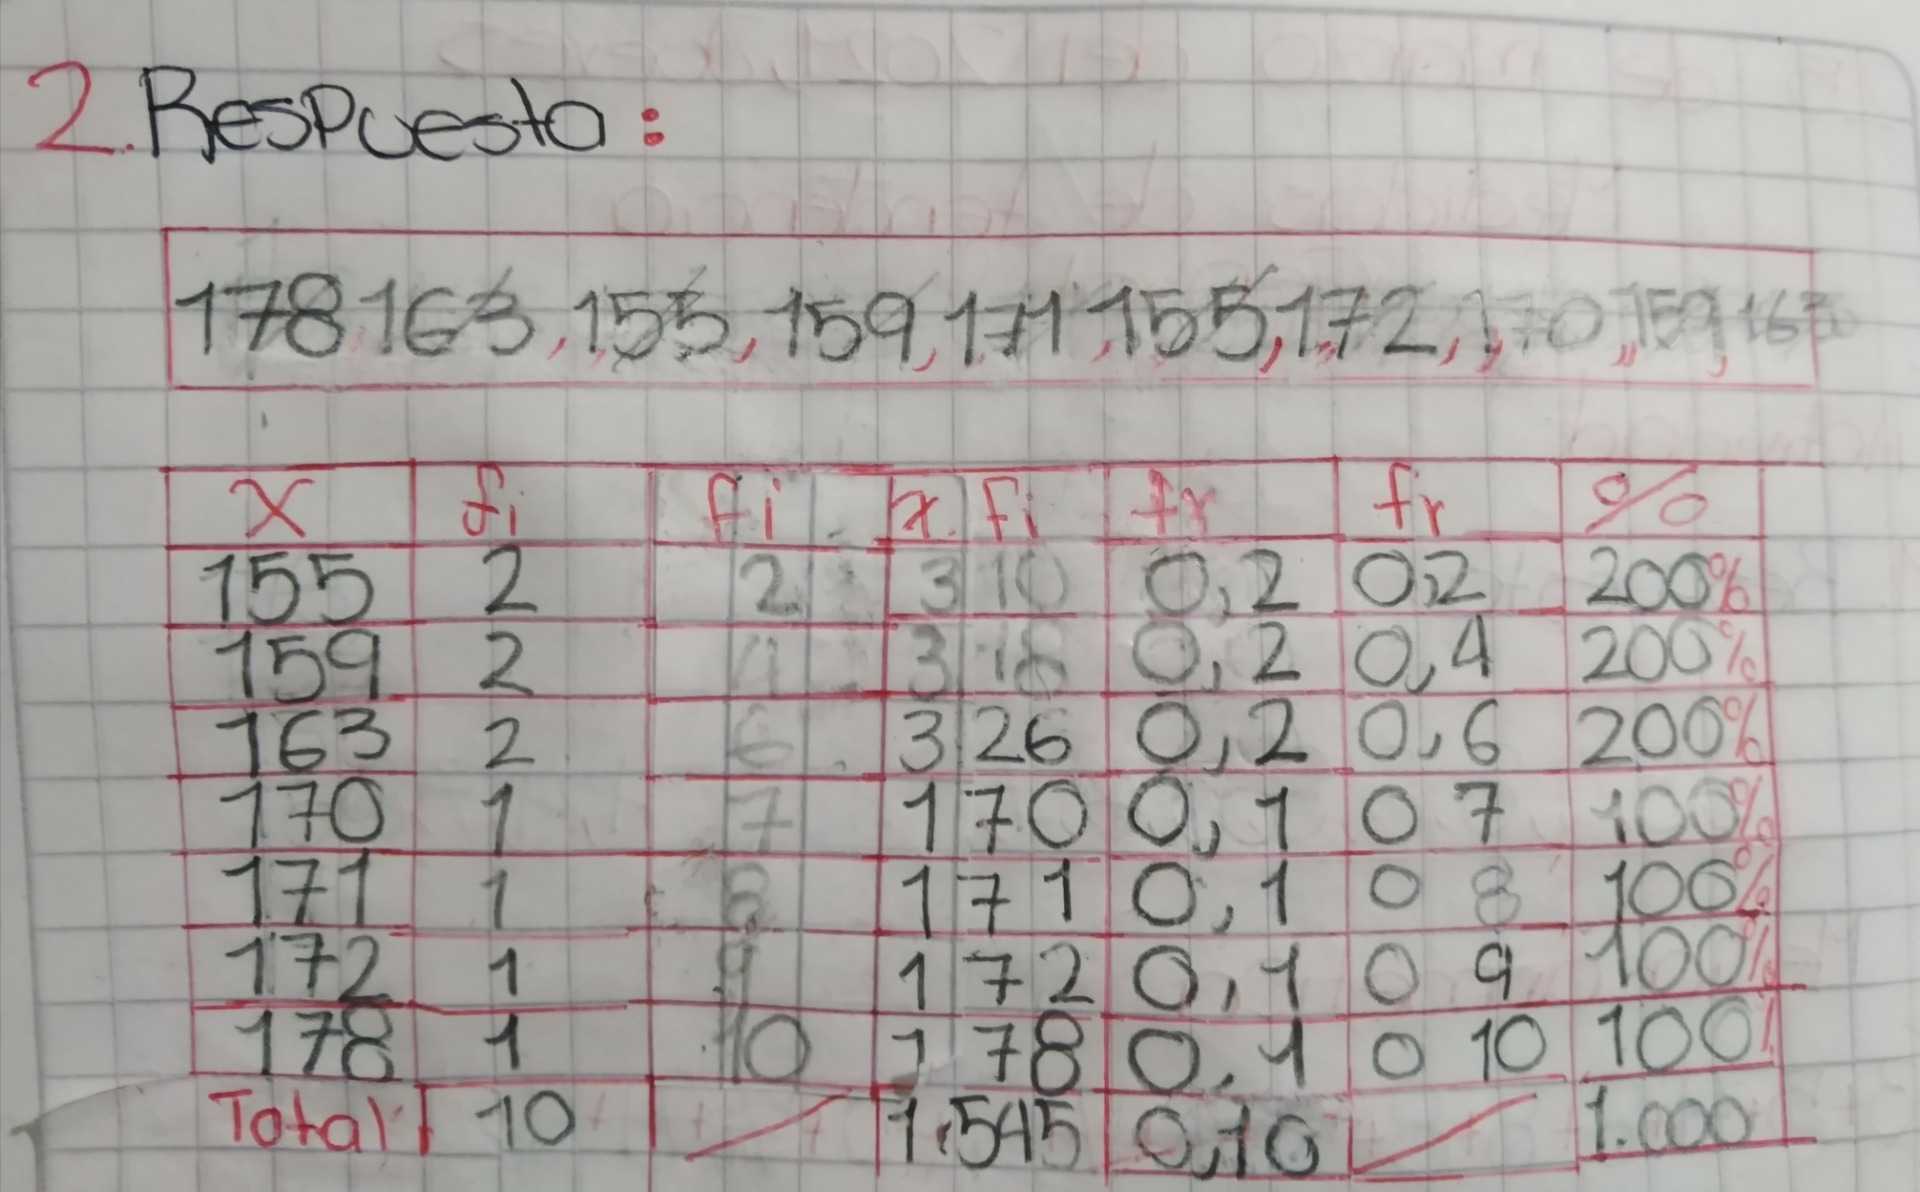 2. Respuesta:
178 163, 155, 159, 171, 155, 172, 170, 159, 163
X fi fi x. fi fr fr %
155 2 2 310 0,2 0,2 200%
159 2 4 318 0,2 0,4 200%
163 2 6 326 0,2 0,6 200%
170 1 7 170 0,1 0 7 100%
171 1 8 171 0,1 0 8 100%
172 1 9 172 0,1 0 9 100%
178 1 10 178 0,1 0 10 100%
Total 10 1.545 0,10 1.000